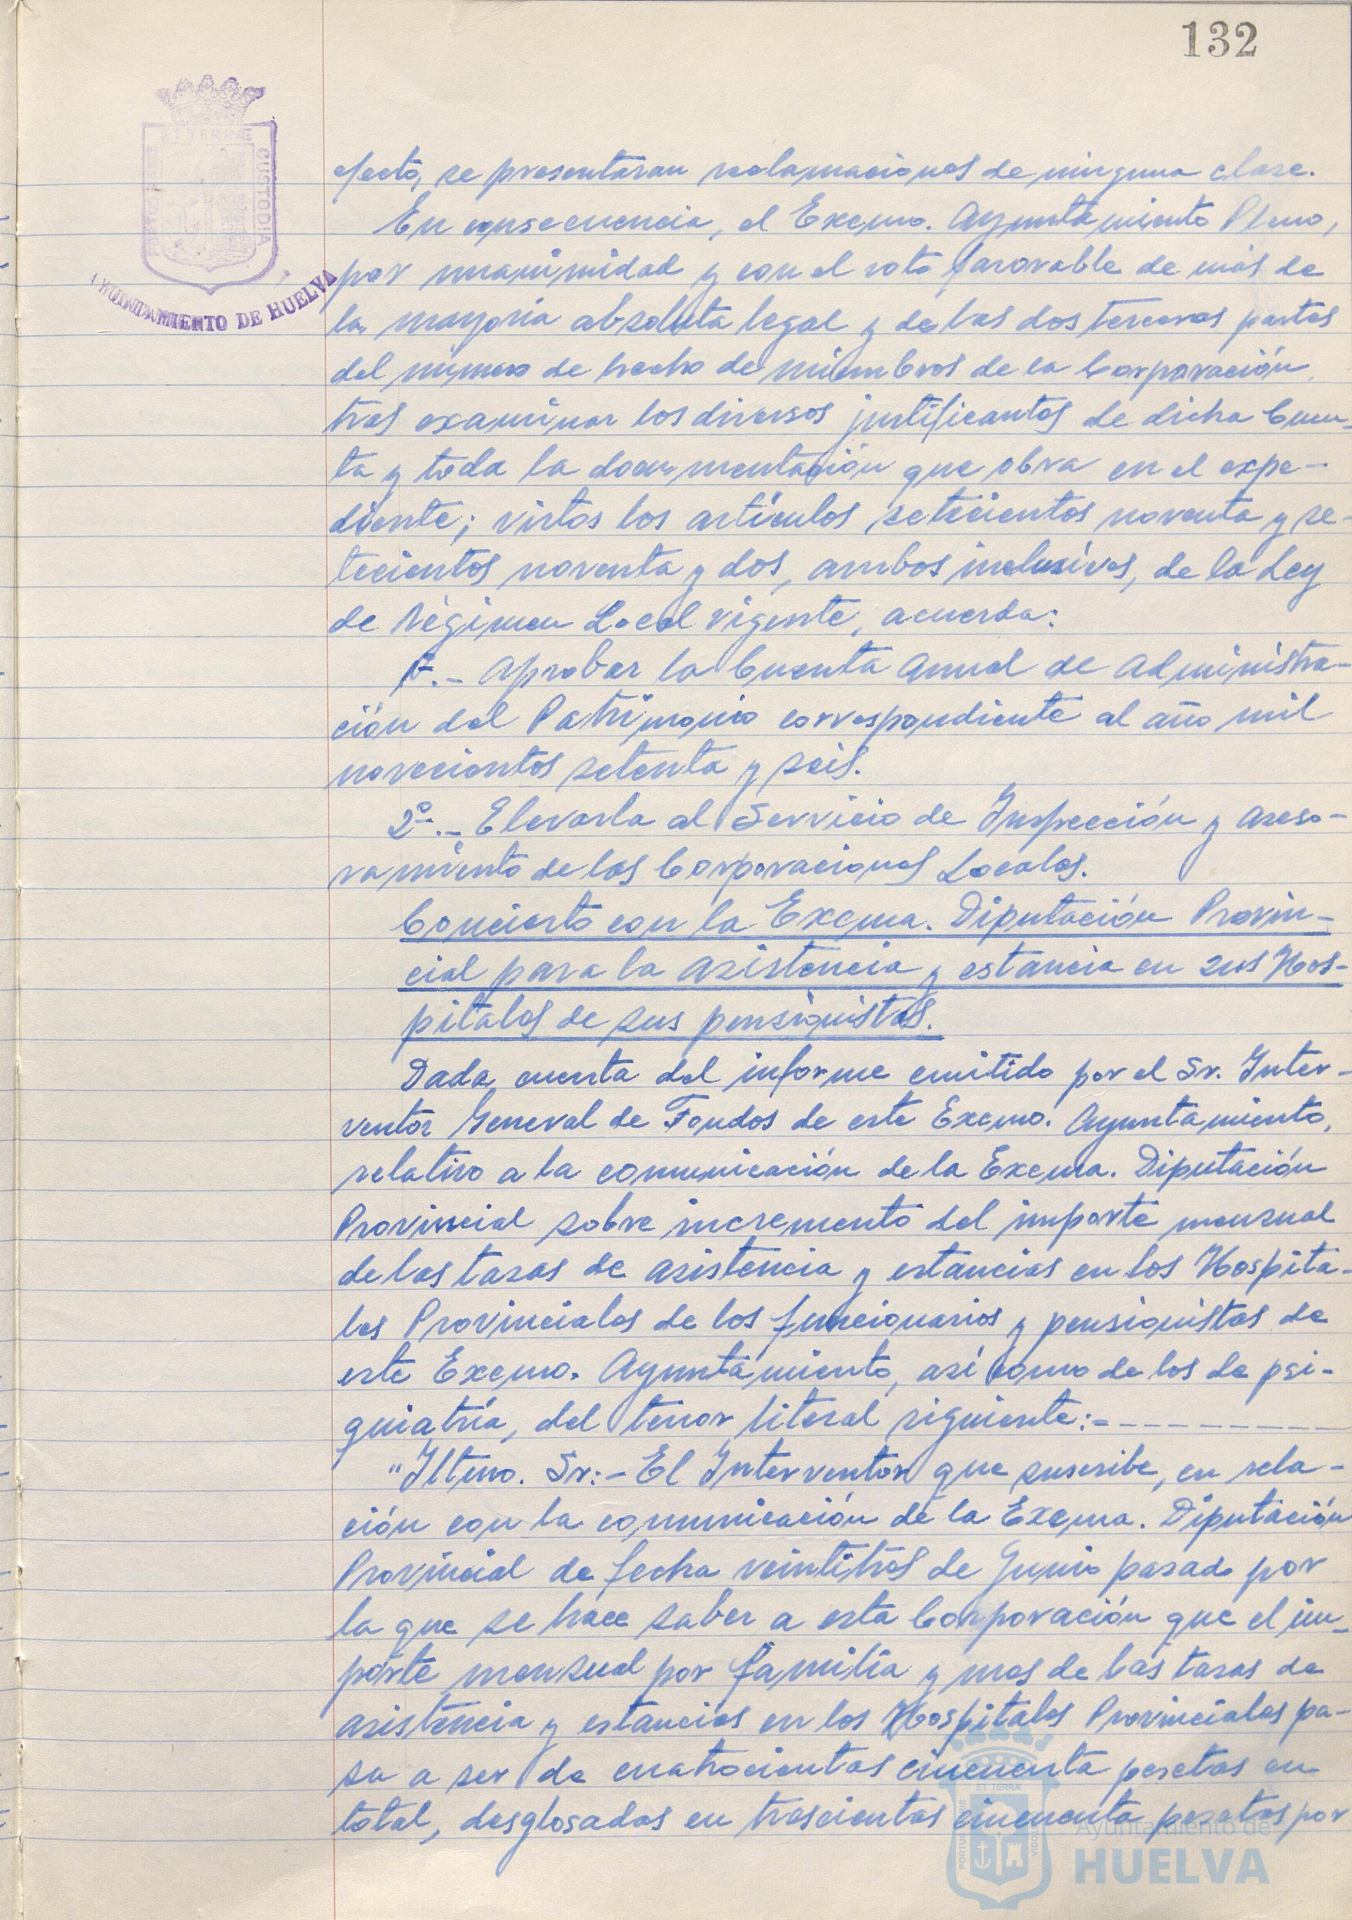 132
ET TERRÆ
CUSTODIA
AYUNTAMIENTO DE HUELVA
efecto, se presentaran reclamaciones de ninguna clase.
En consecuencia, el Excmo. Ayuntamiento Pleno,
por unanimidad y con el voto favorable de más de
la mayoria absoluta legal y de las dos terceras partes
del número de hecho de miembros de la Corporación,
tras examinar los diversos justificantes de dicha Cuen-
ta y toda la documentación que obra en el expe-
diente; vistos los artículos setecientos noventa y se-
tecientos noventa y dos, ambos inclusives, de la Ley
de Régimen Local vigente, acuerda:
1º.- Aprobar la Cuenta Anual de Administra-
ción del Patrimonio correspondiente al año mil
novecientos setenta y seis.
2º.- Elevarla al Servicio de Inspección y Aseso-
ramiento de las Corporaciones Locales.
Concierto con la Excma. Diputación Provin-
cial para la asistencia y estancia en sus Hos-
pitales de sus pensionistas.
Dada cuenta del informe emitido por el Sr. Inter-
ventor General de Fondos de este Excmo. Ayuntamiento,
relativo a la comunicación de la Excma. Diputación
Provincial sobre incremento del importe mensual
de las tasas de asistencia y estancias en los Hospita-
les Provinciales de los funcionarios y pensionistas de
este Excmo. Ayuntamiento, así como de los de psi-
quiatría, del tenor literal siguiente:- - - - - - - - -
"Iltmo. Sr:- El Interventor que suscribe, en rela-
ción con la comunicación de la Excma. Diputación
Provincial de fecha veintitres de Junio pasado por
la que se hace saber a esta Corporación que el im-
porte mensual por familia y mes de las tasas de
asistencia y estancias en los Hospitales Provinciales pa-
sa a ser de cuatrocientas cincuenta pesetas en
total, desglosadas en trescientas cincuenta pesetas por
ET TERRÆ
Ayuntamiento de
HUELVA